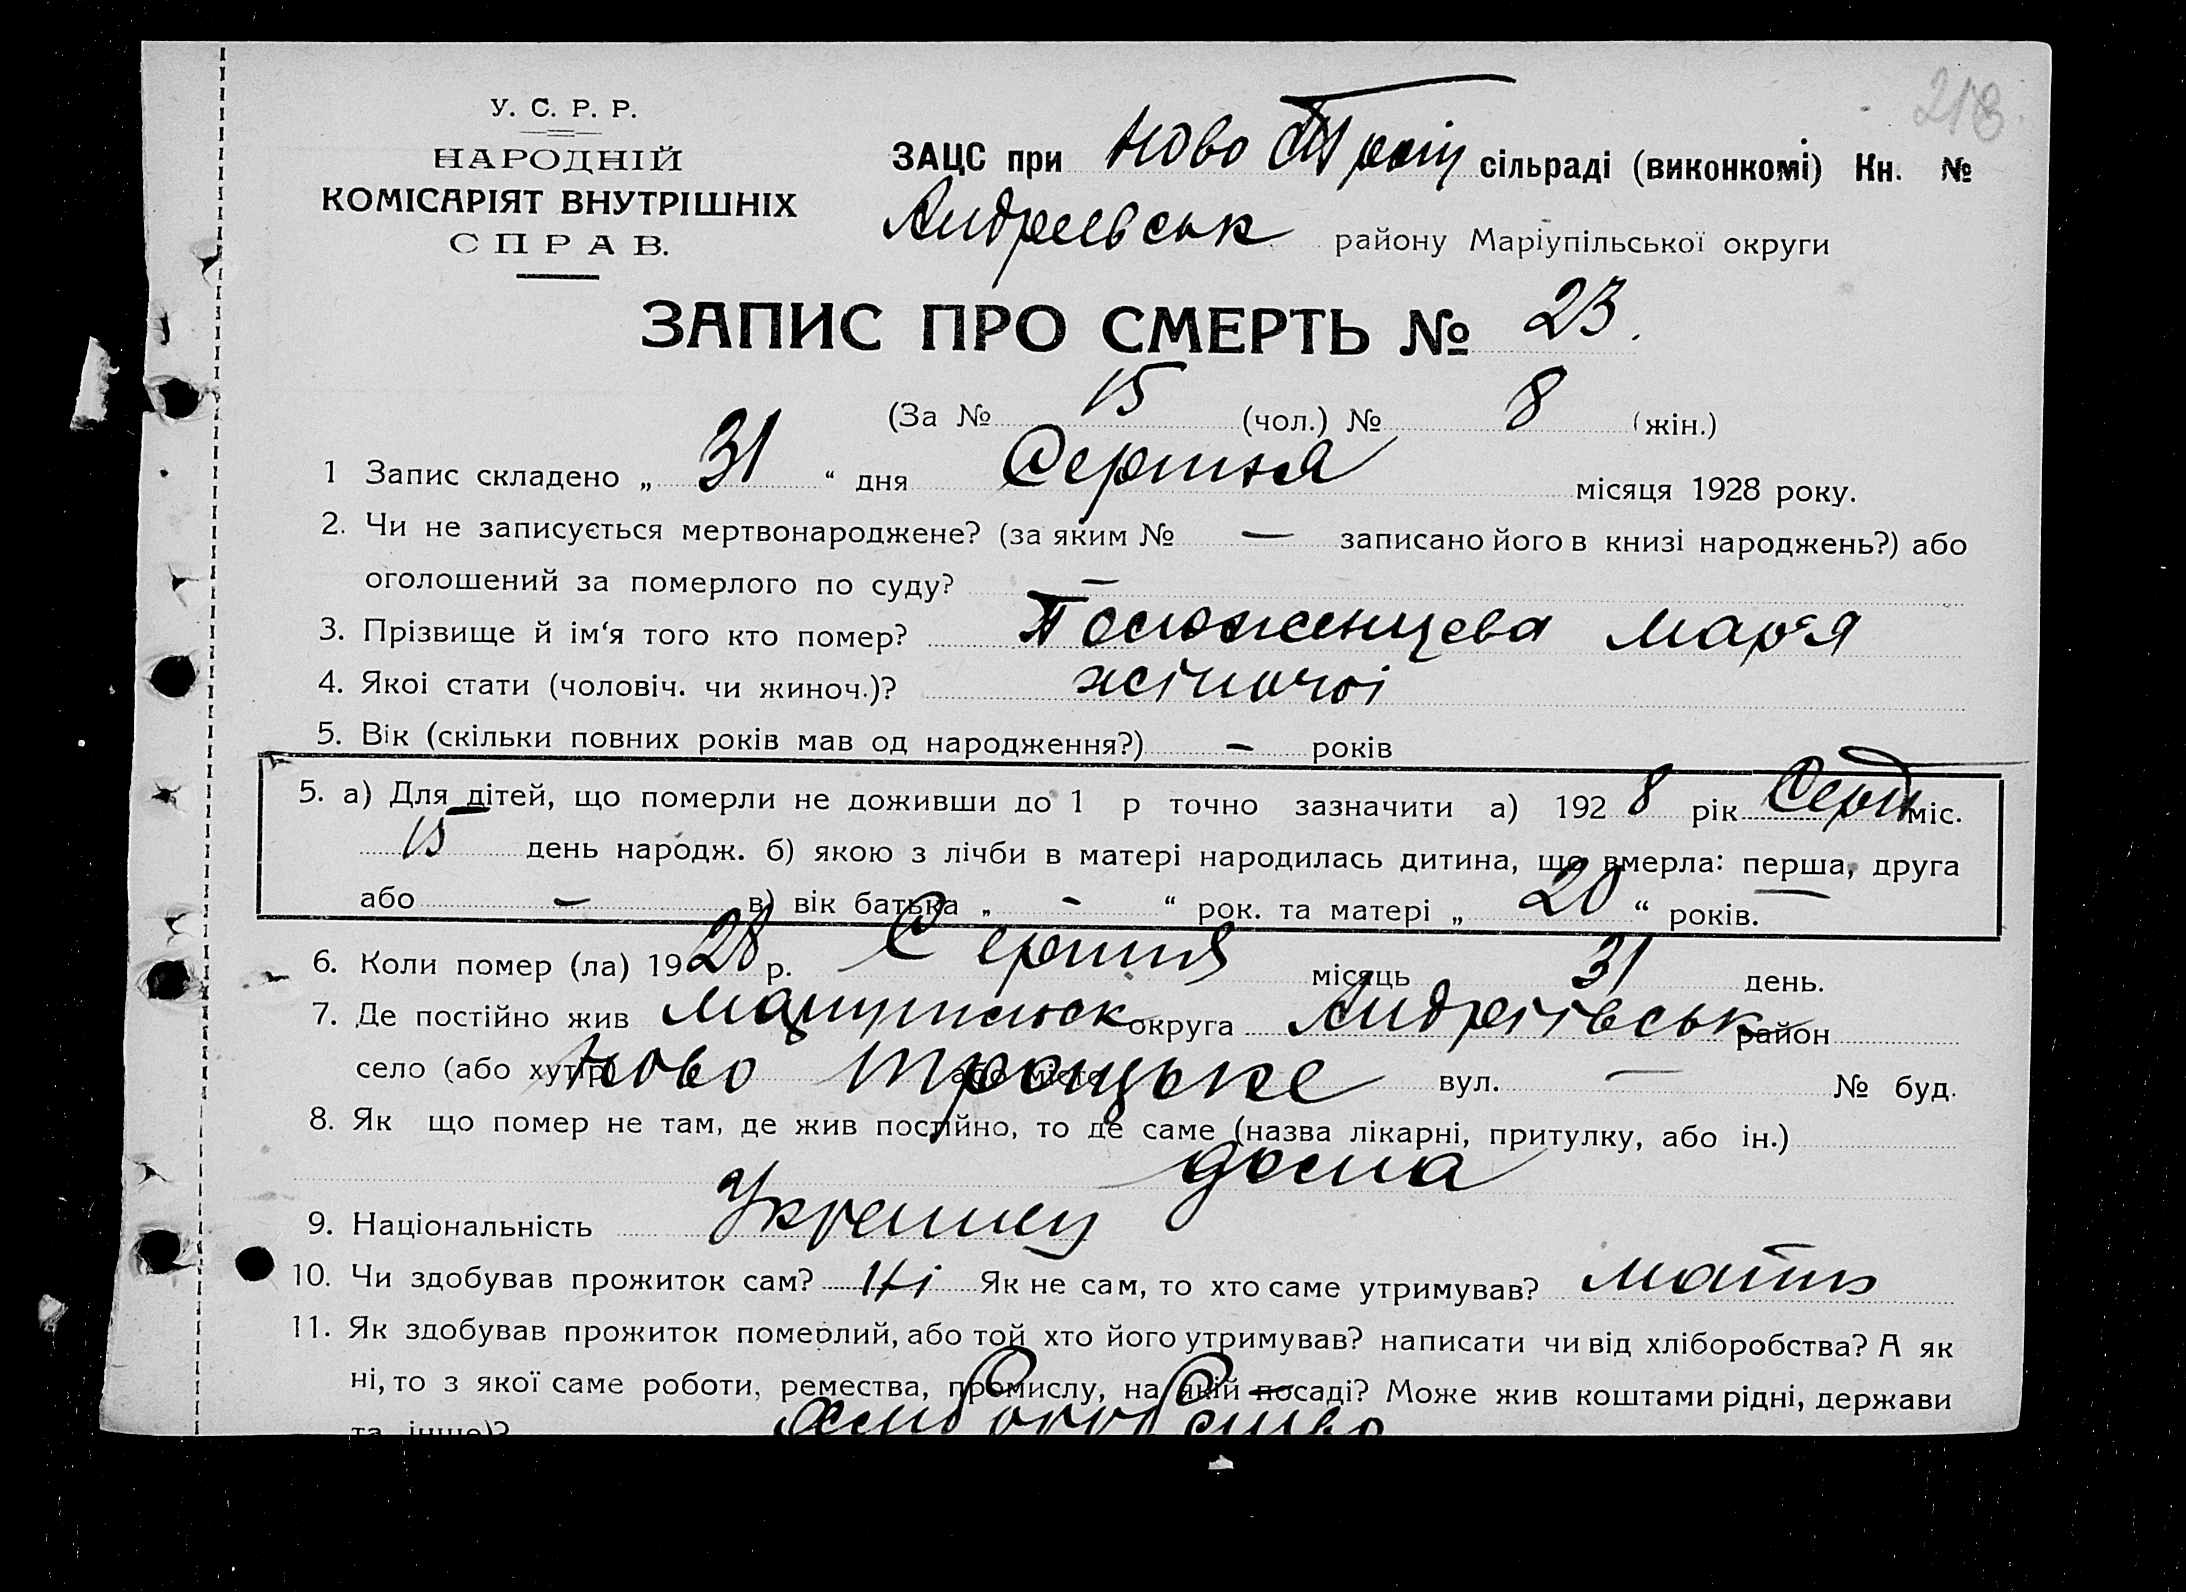 213
У. С. Р. Р.
НАРОДНІЙ
КОМІСАРІЯТ ВНУТРІШНІХ
СПРАВ.
ЗАЦС при Ново Троїц сільраді (виконкомі) Кн. №
Андреевськ району Маріупільської округи
ЗАПИС ПРО СМЕРТЬ № 23.
(За № 15 (чол.) № 8 (жін.)
1 Запис складено „ 31 “ дня Серпня місяця 1928 року.
2. Чи не записується мертвонароджене? (за яким № — записано його в книзі народжень?) або
оголошений за померлого по суду? —
3. Прізвище й ім‘я того кто помер? Мар'я
4. Якоі стати (чоловіч. чи жиноч.)? жіночоі
5. Вік (скільки повних років мав од народження?) — років
5. а) Для дітей, що померли не доживши до 1 р точно зазначити а) 1928 рік Серп міс.
15 день народж. б) якою з лічби в матері народилась дитина, що вмерла: перша, друга
або — в) вік батька „ - “ рок. та матері „ 20 “ років.
6. Коли помер (ла) 1928 р. Серпня місяць 31 день.
7. Де постійно жив округа Андреівськ район
село (або хутір) Ново Троцьке або місто вул. — № буд.
8. Як що помер не там, де жив постійно, то де саме (назва лікарні, притулку, або ін.)
дома
9. Національність
10. Чи здобував прожиток сам? Ні Як не сам, то хто саме утримував? мать
11. Як здобував прожиток померлий, або той хто його утримував? написати чи від хліборобства? А як
ні, то з якої саме роботи, ремества, промислу, на якій посаді? Може жив коштами рідні, держави
та інше)? Хлиборобство